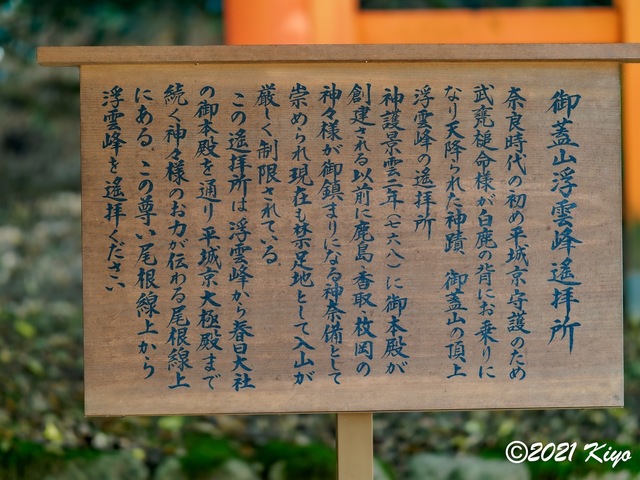 御蓋山浮雲峰遙拝所
奈良時代の初め平城京守護のため
武甕槌命様が白鹿の背にお乗りに
なり天降られた神蹟、御蓋山の頂上
浮雲峰の遥拝所
神護景雲二年(七六八)に御本殿が
創建される以前に鹿島・香取・枚岡の
神々様が御鎮まりになる神奈備として
崇められ現在も禁足地として入山が
厳しく制限されている。
この遥拝所は、浮雲峰から春日大社
の御本殿を通り平城京大極殿まで
続く神々様のお力が伝わる尾根線上
にある。この尊い尾根線上から
浮雲峰を遥拝ください
©2021 Kiyo